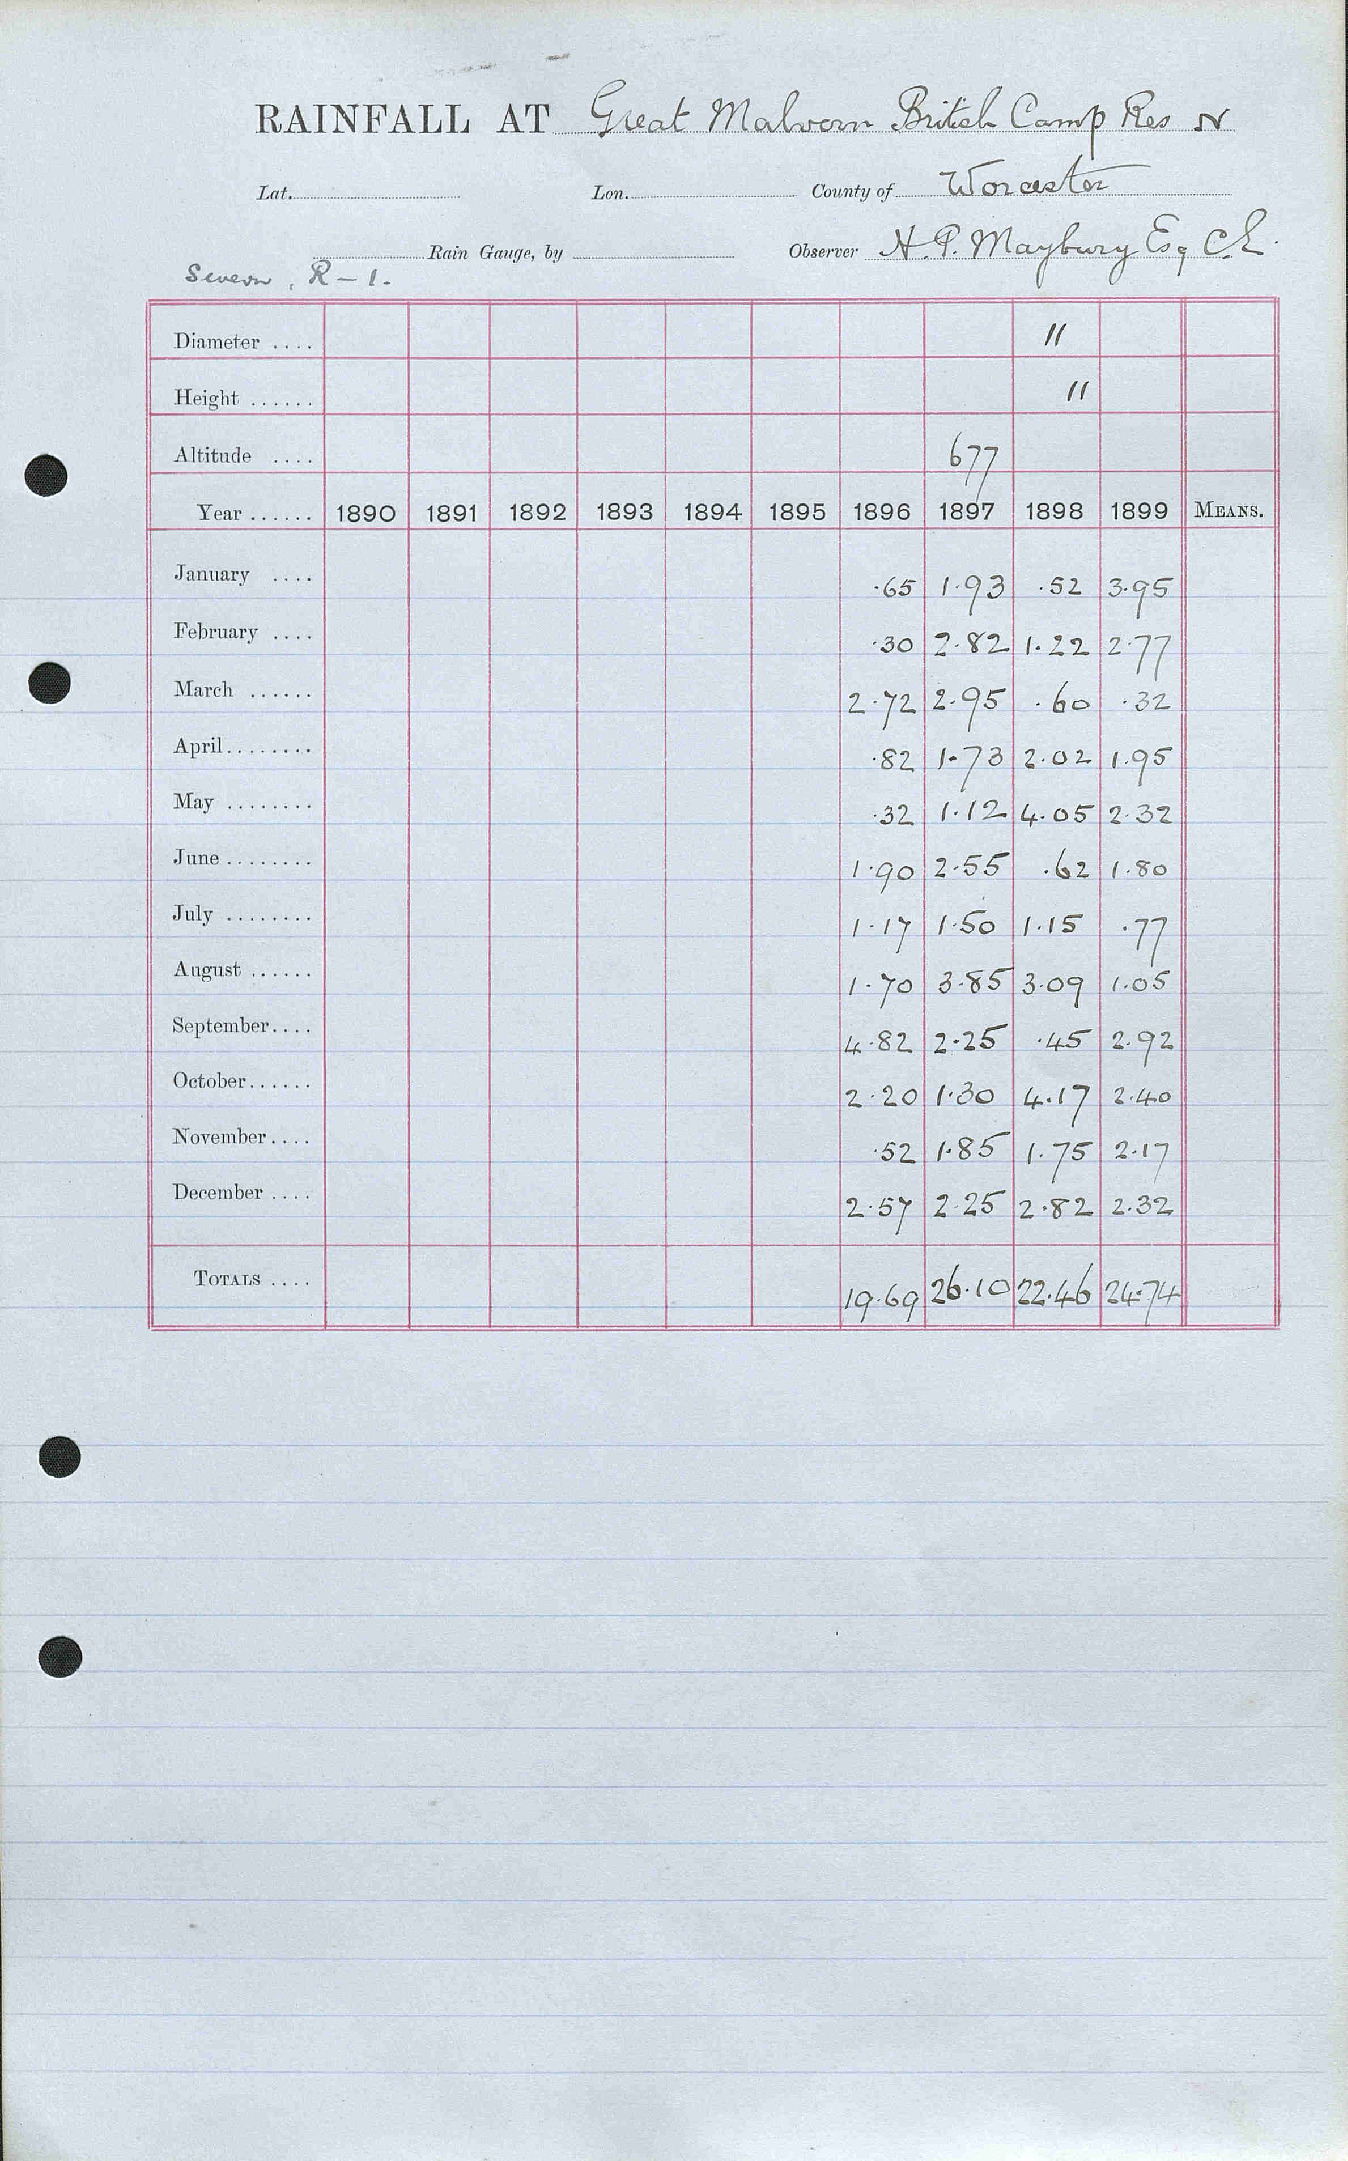 RAINFALL AT Great Malvern British Camp Res N
Lat. Lon. County of Worcester
Rain Gauge, by Observer H. P. Maybury Esq C.E.
Severn, R – 1.
Diameter .... 11
Height ...... 11
Altitude .... 677
Year ...... 1890 1891 1892 1893 1894 1895 1896 1897 1898 1899 MEANS.
January .... .65 1.93 .52 3.95
February .... .30 2.82 1.22 2.77
March ...... 2.72 2.95 .60 .32
April........ .82 1.73 2.02 1.95
May ........ .32 1.12 4.05 2.32
June ........ 1.90 2.55 .62 1.80
July ........ 1.17 1.50 1.15 .77
August ...... 1.70 3.85 3.09 1.05
September.... 4.82 2.25 .45 2.92
October...... 2.20 1.30 4.17 2.40
November.... .52 1.85 1.75 2.17
December .... 2.57 2.25 2.82 2.32
TOTALS .... 19.69 26.10 22.46 24.74